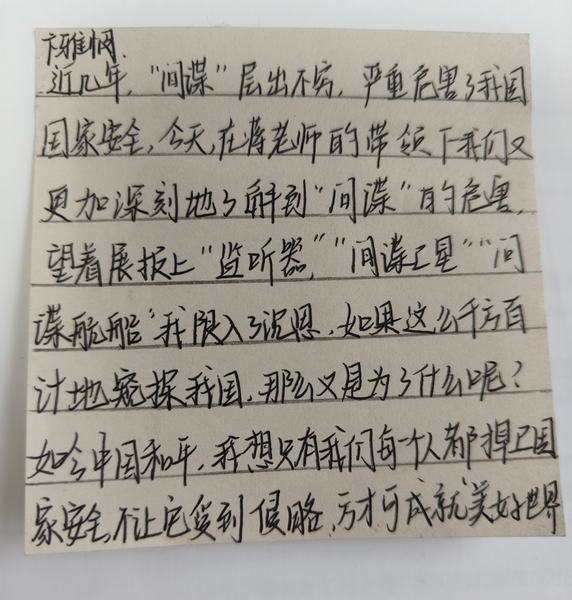 卞雅炯
近几年，“间谍”层出不穷，严重危害了我国
国家安全，今天，在蒋老师的带领下我们又
更加深刻地了解到“间谍”的危害，
望着展板上“监听器”“间谍卫星”“间
谍航船”我限入了沉思，如果这么千方百
计地窥探我国，那么又是为了什么呢？
如今中国和平，我想只有我们每一个人都捍卫国
家安全，不让它受到侵略，方才可成就美好世界